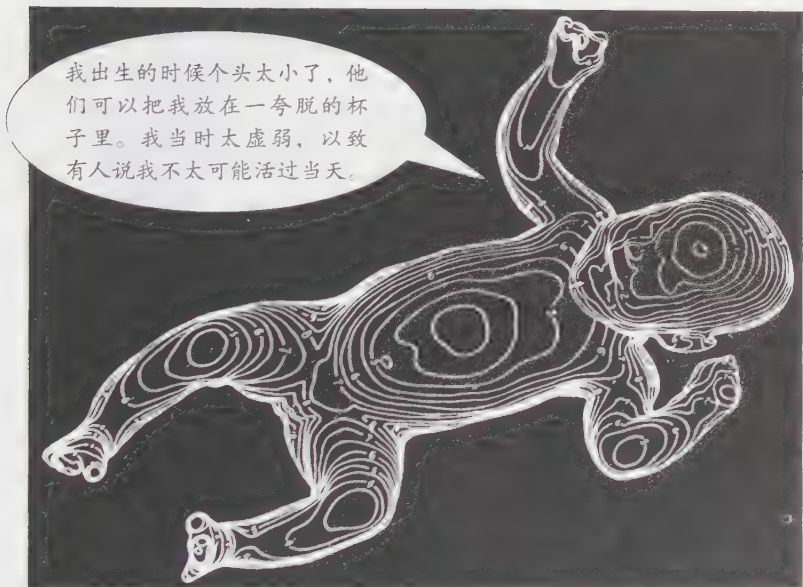 我出生的时候个头太小了，他
们可以把我放在一夸脱的杯
子里。我当时太虚弱，以致
有人说我不太可能活过当天。